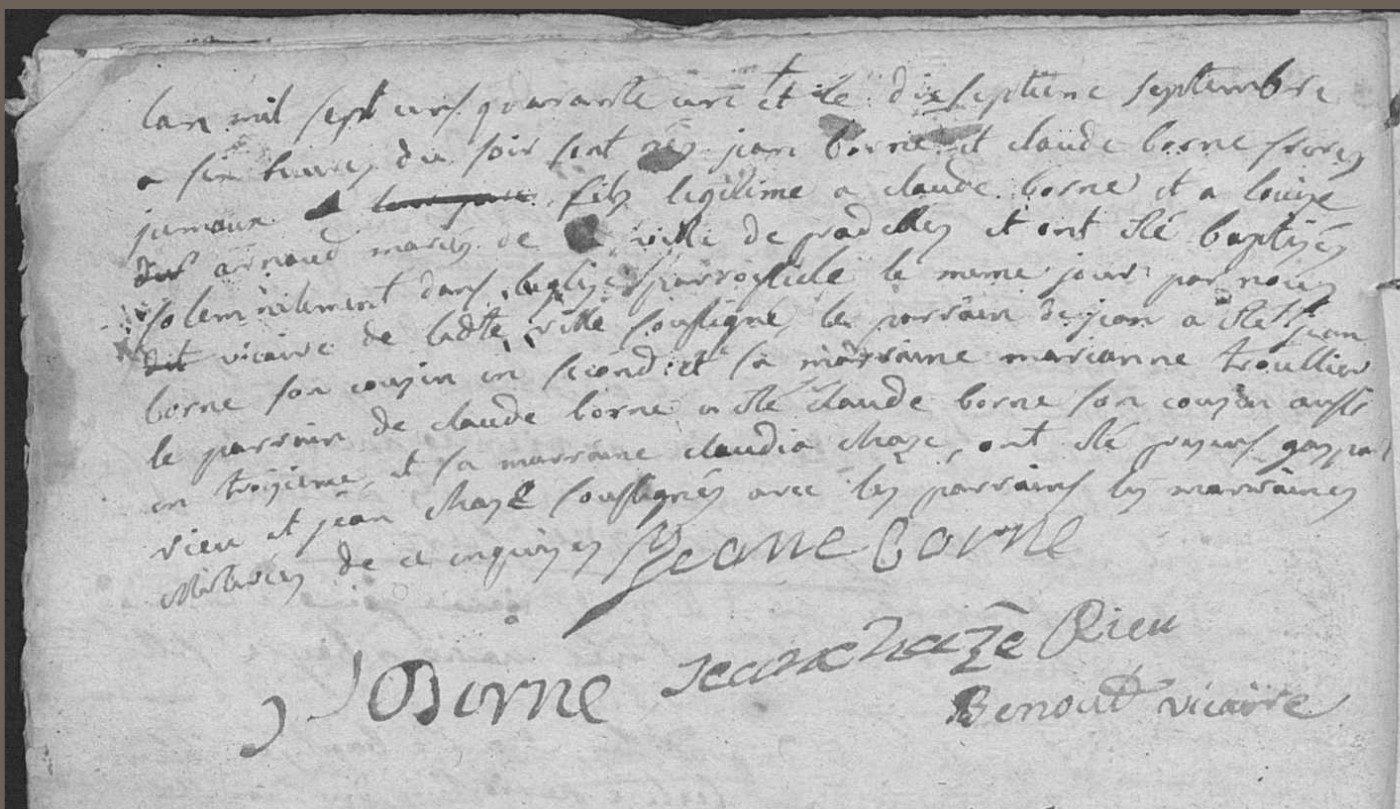 lan mil sept cens quarante un et le dixseptieme septembre
a six heures du soir sont nés jean borne et claude borne freres
jumaux fils legitime a claude borne et a louize
arnaud mariés de la ville de pradelles et ont êté baptisés
solemnilement dans leglise parroissiele le meme jour par nous
dit vicaire de ladte ville soussigné, le parrain de jean a êté jean
borne son cousin en second et sa marraine marianne troullier
le parrain de claude borne a êté claude borne son cousin aussi
en troizieme, et sa marraine claudia chaze, ont êté presens gaspar
rieu et jean chaze soussignés avec les parrains les marraines
illiterées de ce enquizes
jeane borne
Borne jean chaze Rieu
Benoit vicaire